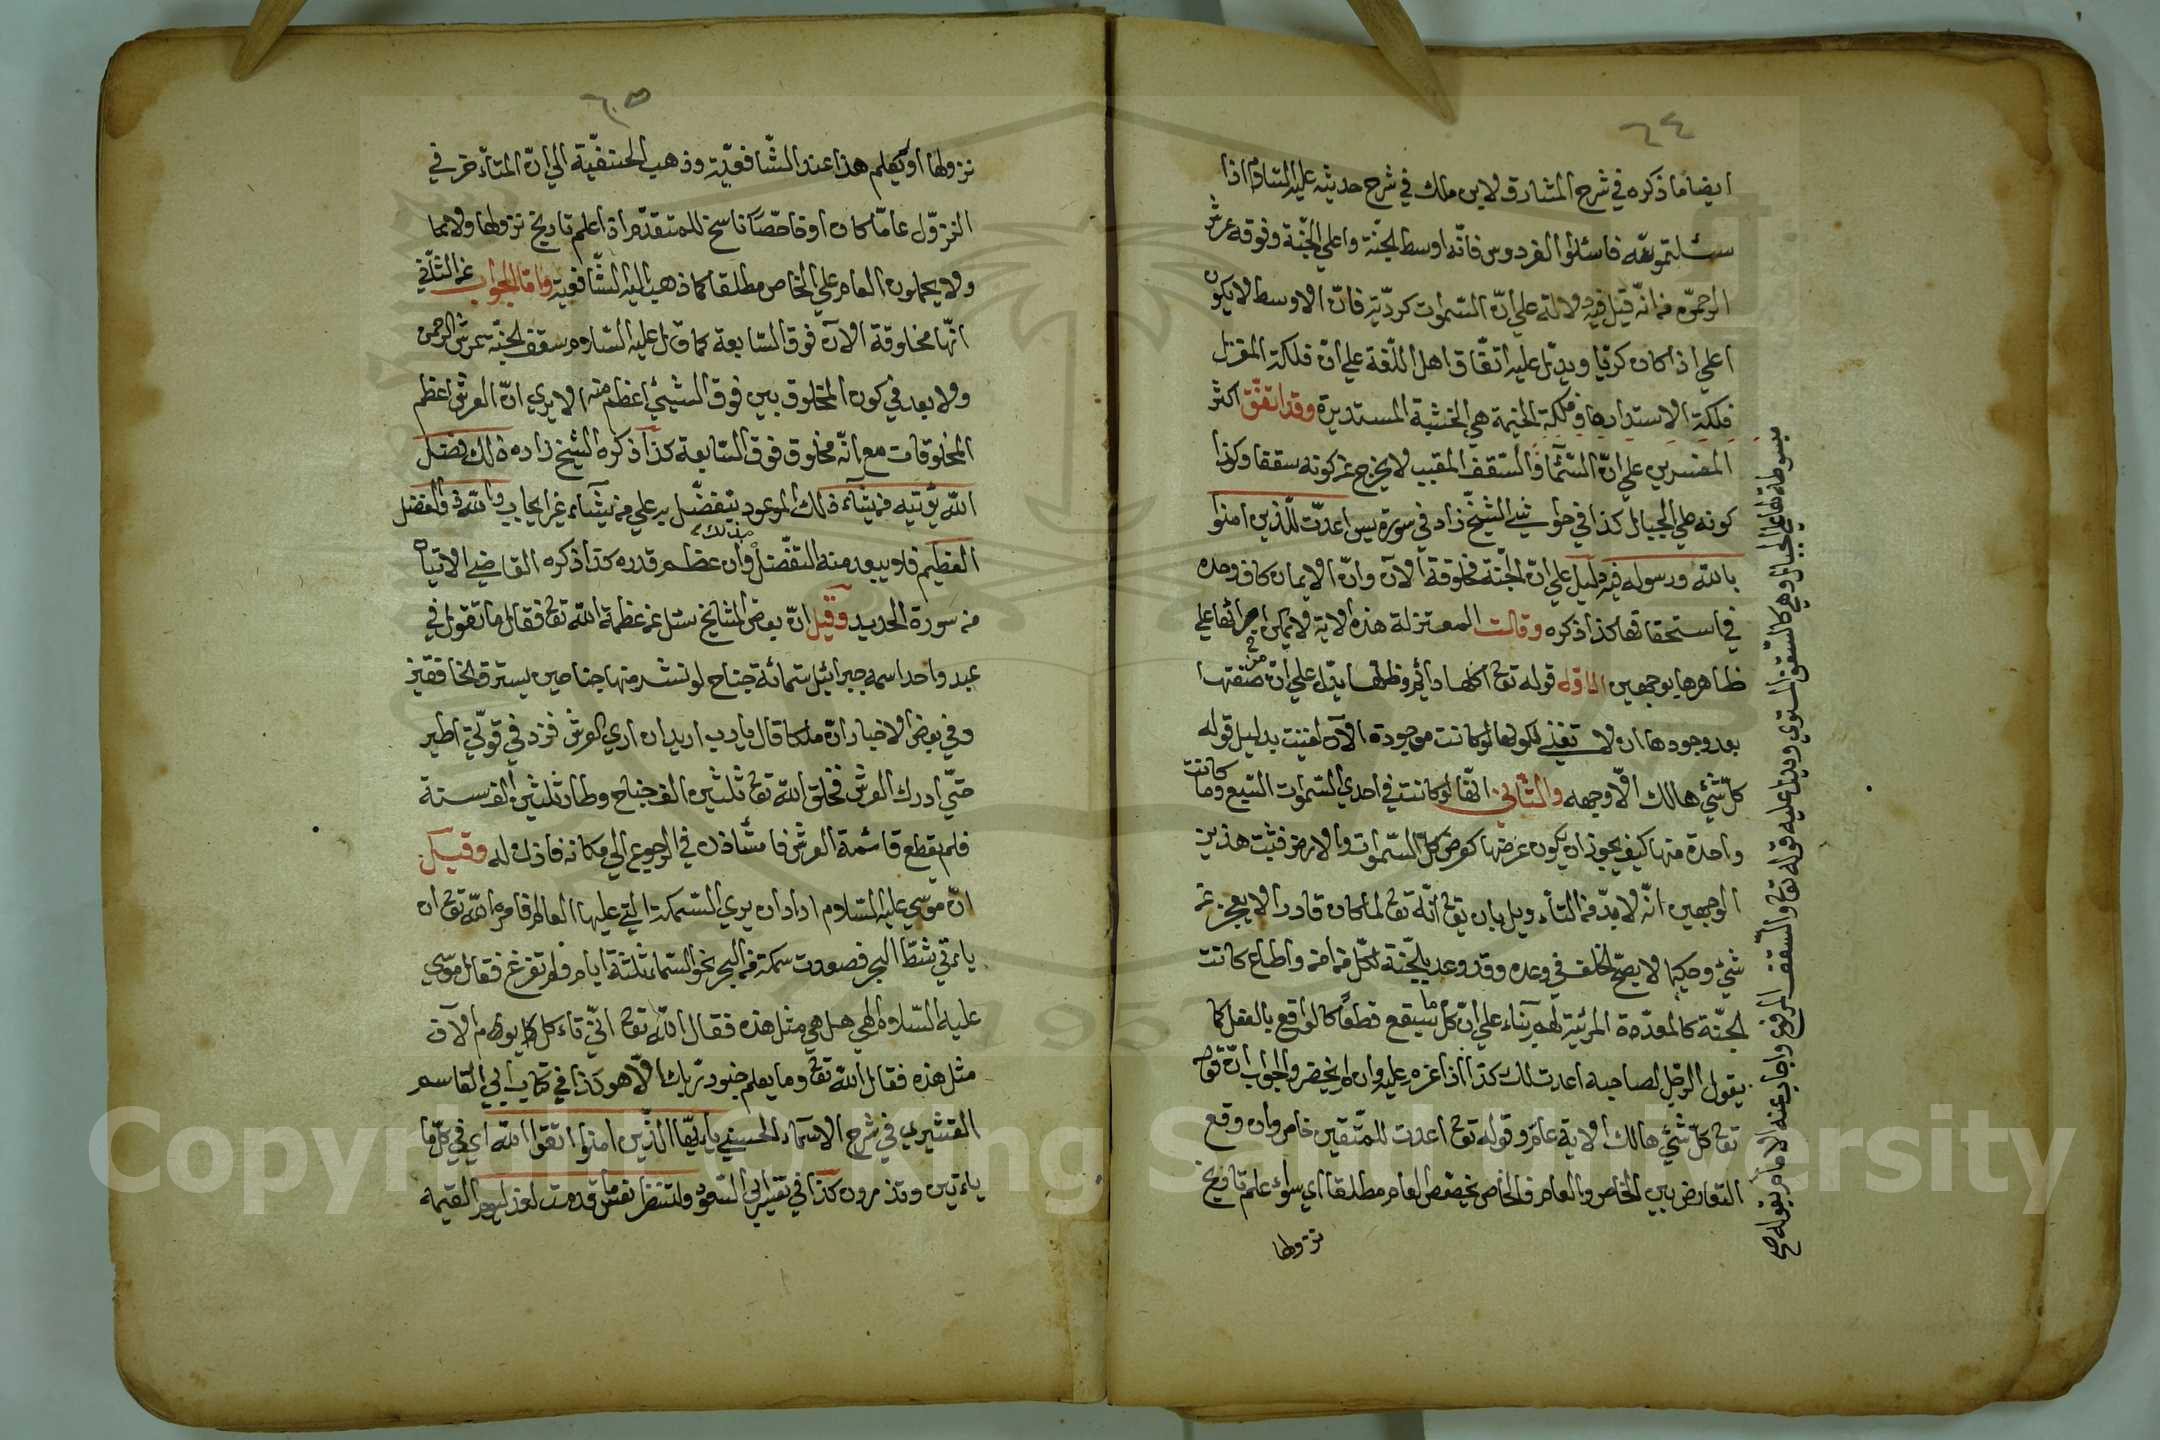 ٦٤
ايضا ما ذكره في شرح المشارق لابن ملك في شرح حديثه عليه السلام اذا
سئلتموا الله فاسئلوا الفردوس فانه اوسط الجنة واعلي الجنة وفوقه عرش
الرحمن فانه قيل فيه دلالة علي ان السموات كريّة فان الاوسط لا يكون
اعلي اذا كان كريا ويدل عليه اتفاق اهل اللغة علي ان فلكة المغزل
فلكة لاستدارتها وفلكة الخيمة هي الخشبة المستديرة وقد اتفق اكثر
المفسرين علي ان السماء والسقف المقبب لا يخرج عن كونه سقفا وكذا
كونه علي الجبال كذا في حواشي الشيخ زاده في سورة يس اعدت للذين امنوا
بالله ورسوله فيه دليل علي ان الجنة مخلوقة الآن وان الايمان كاف وحده
في استحقاقها كذا ذكره وقالت المعتزلة هذه الاية لا يمكن اجرائها علي
ظاهرها بوجهين الاول قوله تع اكلها دائم وظلها يدل علي ان من صفتها
بعد وجودها ان لا تفني لكونها لو كانت موجودة الآن لفنيت بدليل قوله
كل شئ هالك الا وجهه والثاني انها لو كانت في احدي السموات السبع وما كانت
واحدة منها كيف يجوز ان يكون عرضها كعرض كل السموات والارض فثبت هذين
الوجهين انه لا بد من التأويل بان يق انه تع لما كان قادرا لا يعجز عن
شئ وحكيما لا يصح الخلف في وعده وقد وعد بالجنة لكل من امن واطاع كانت
الجنة كالمعدة المرئية لهم بناء علي ان كل ما سيقع قطعا كالواقع بالفعل كما
يقول الرجل لصاحبه اعددت لك كذا اذا عزم عليه وان لم يحضر والجواب ان قوله
تع كل شئ هالك الاية عام وقوله تع اعدت للمتقين خاص وان وقع
التعارض بين الخاص والعام فالخاص يخصص العام مطلقا اي سواء علم تاريخ
نزولها
مبسوطة لقاء علي الجبال وهي كالسقف المستوي ويدل عليه قوله تع والسقف المرفوع واجاب عنه الامام بقوله صح
٦٥
نزولها او لم يعلم هذا عند الشافعية وذهب الحنفية الي ان المتأخر في
النزول عاما كان او خاصا ناسخ للمتقدم اذا علم تاريخ نزولها ولا
ولا يحملون العام علي الخاص مطلقا كما ذهب اليه الشافعية واما الجواب عن الثاني
انها مخلوقة الآن فوق السابعة كما قال عليه السلام سقف الجنة عرش الرحمن
ولا بعد في كون المخلوق بين فوق الشئ اعظم منه الا يري ان العرش اعظم
المخلوقات مع انه مخلوق فوق السابعة كذا ذكره الشيخ زاده ذلك فضل
الله يؤتيه من يشاء ذلك الموعود يتفضل به علي من يشاء من غير ايجاب والله ذو الفضل
العظيم فلا يبعد منه التفضل بذلك وان عظم قدره كذا ذكره القاضي الاتيان
من سورة الحديد وقيل ان بعض المشايخ سئل عن عظمة الله تع فقال ما تقول في
عبد واحد اسمه جبرائيل ستمائة جناح لو نشر منها جناحين يستر الخافقين
وفي بعض الاخبار ان ملكا قال يا رب اريد ان اري العرش فزد في قوتي اطير
حتي ادرك العرش فخلق الله تع ثلثين الف جناح وطار ثلثين الف سنة
فلم يقطع قائمة العرش فاستأذن في الرجوع الي مكانه فاذن له وقيل
ان موسي عليه السلام اراد ان يري السمكة التي عليها العالم فامره الله تع ان
يأتي شط البحر فصعدت سمكة من البحر نحو السماء ثلثة ايام ولم تفرغ فقال موسي
عليه السلام الهي هل هي مثل هذه فقال الله تع اني تأكل كل يوم الاف
مثل هذه فقال الله تع وما يعلم جنود ربك الا هو كذا في كتاب ابي القاسم
القشيري في شرح الاسماء الحسني يا ايها الذين امنوا اتقوا الله اي في كل ما
يأتين وتذرون كذا في تفسير ابي السعود ولتنظر نفس ما قدمت لغد ليوم القيمة
Copyright © King Saud University
1957